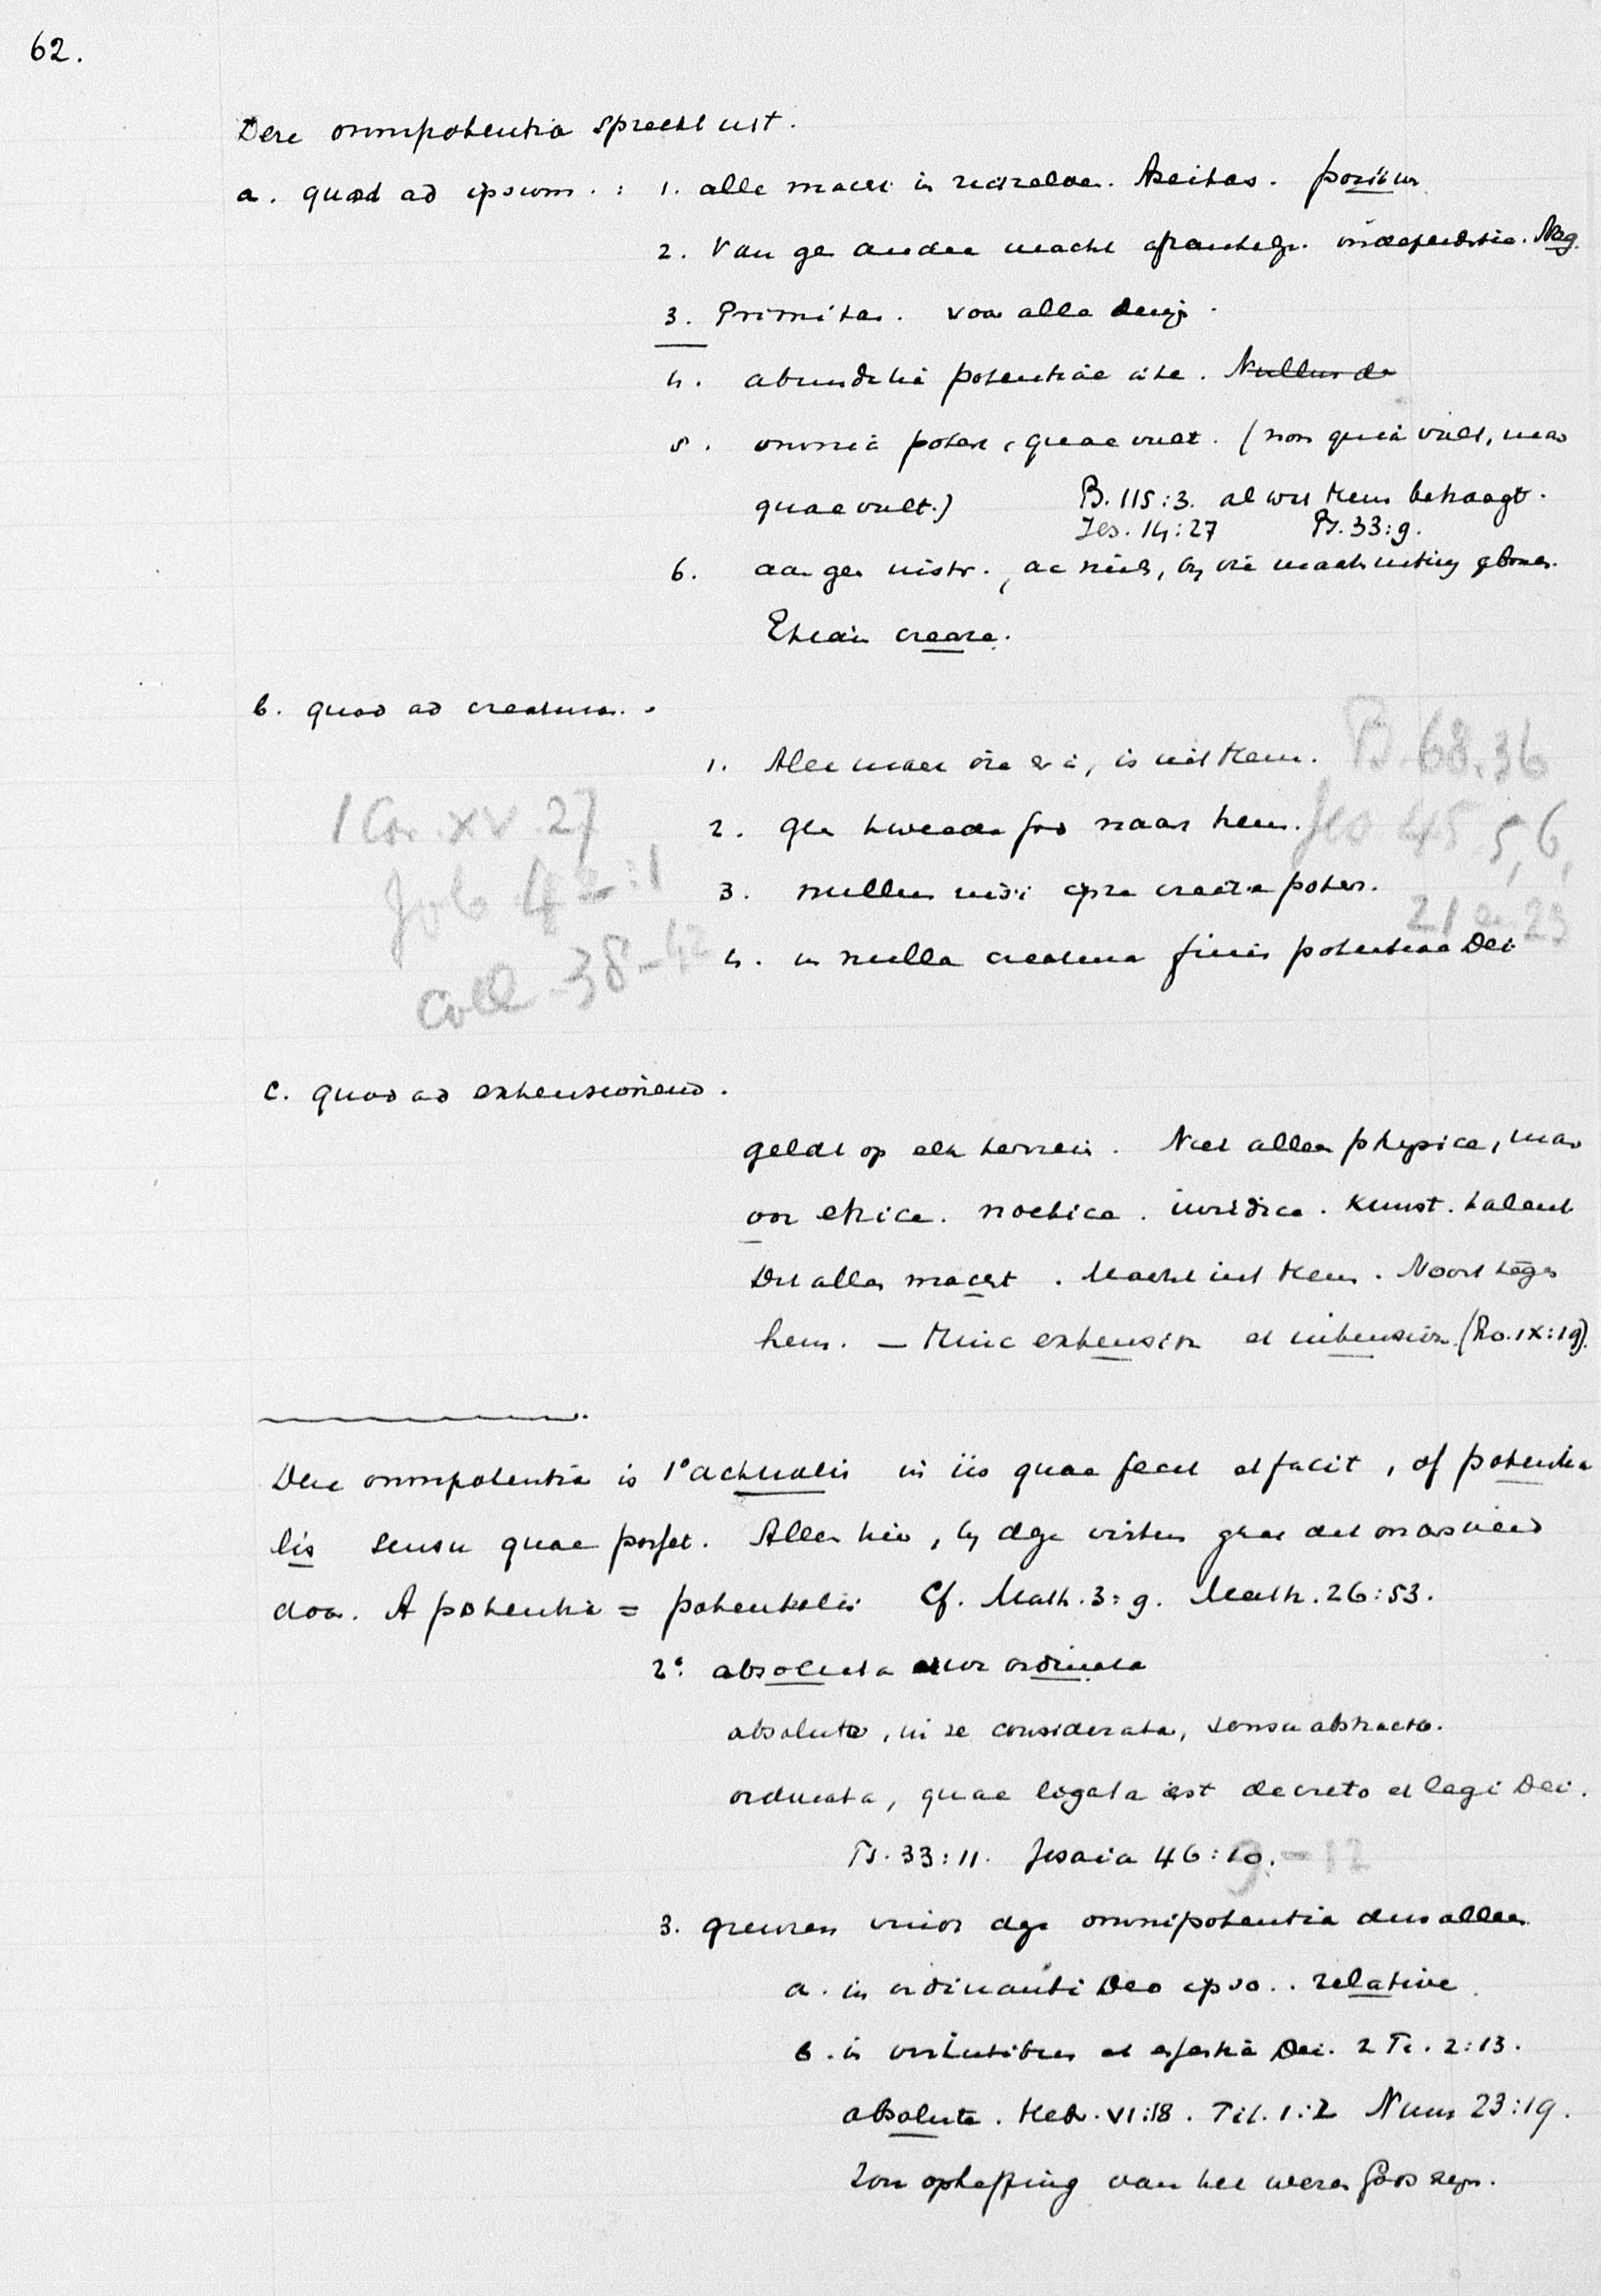 62.
Deze omnipotentia spreekt uit.
a. quod ad ipsum. : 1. alle macht in zichzelve. Aseitas. positus
2. Van gn andere macht afhankelijk. independentia. Neg.
3. Primitas. voor alle dingn.
4. abundantia potentiae vitae. Nullus de
5. omnia potest, quae vult. (non quia vult, maar
quae vult.) Ps. 115:3. al wat Hem behaagt.
Jes. 14:27 Ps. 33:9.
6. aan gn instr., ac niets, bij die machtuiting gebonden.
Etiam creare.
b. quod ad creaturam.
1. Alle macht die er is, is uit Hem. Ps. 68.36
2. Gn tweede God naast hem. Jes. 45 5, 6,
21 en 23
1 Cor. XV. 27
Job 42:1
coll 38-42
3. nullus nisi ipse creare potest.
4. in nulla creatura finis potentiae Dei
c. quod ad extensionem.
geldt op elk terrein. Niet alleen physice, maar
ook ethice. noetice. iuridice. Kunst. talent
Dit alles macht. Macht uit Hem. Nooit tegen
hem. — Hinc extensior et intensior. (Ro. IX:19).
Deze omnipotentia is 1° actualis in iis quae fecit et facit, of potentia
lis sensu quae posset. Alleen hier, bij deze virtus gaat dit onderscheid
door. A potentia = potentialis Cf. Math. 3:9. Math. 26:53.
2° absoluta sive ordinata
absoluta, in se considerata, sensu abstracto.
ordinata, quae ligata est decreto et legi Dei.
Ps. 33:11. Jesaia 46:10. 9-12
3. grenzen vindt deze omnipotentia dus alleen
a. in ordinanti Deo ipso.. relative
b. in virtutibus et essentia Dei. 2 Ti. 2:13.
absolute. Hebr. VI:18. Tit. 1:2 Num 23:19.
Zou opheffing van het wezen Gods zijn.